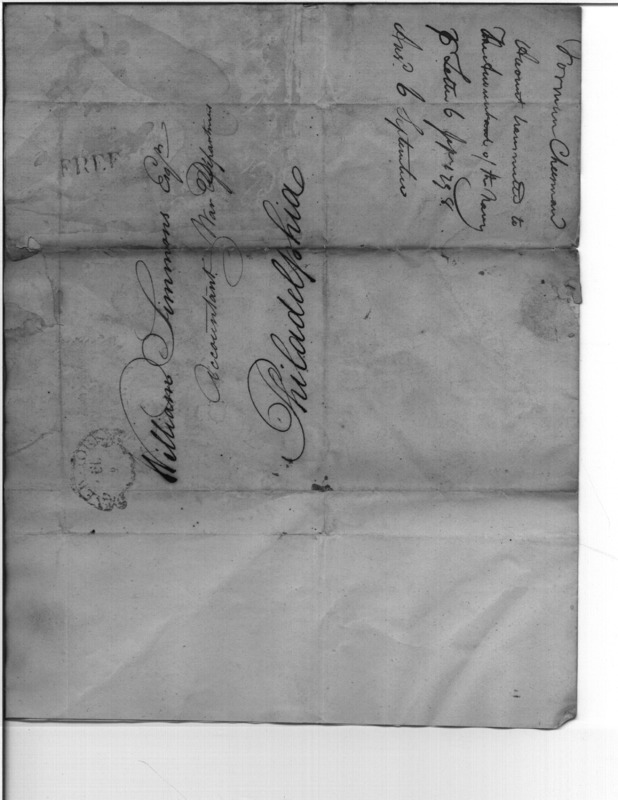 FREE
William Simmons Esqr
Accountant War Department
Philadelphia
Forman Cheesman
Account transmitted to
The Accountant of the Navy
Letter 6 Sept 1798
Ansd 6 September